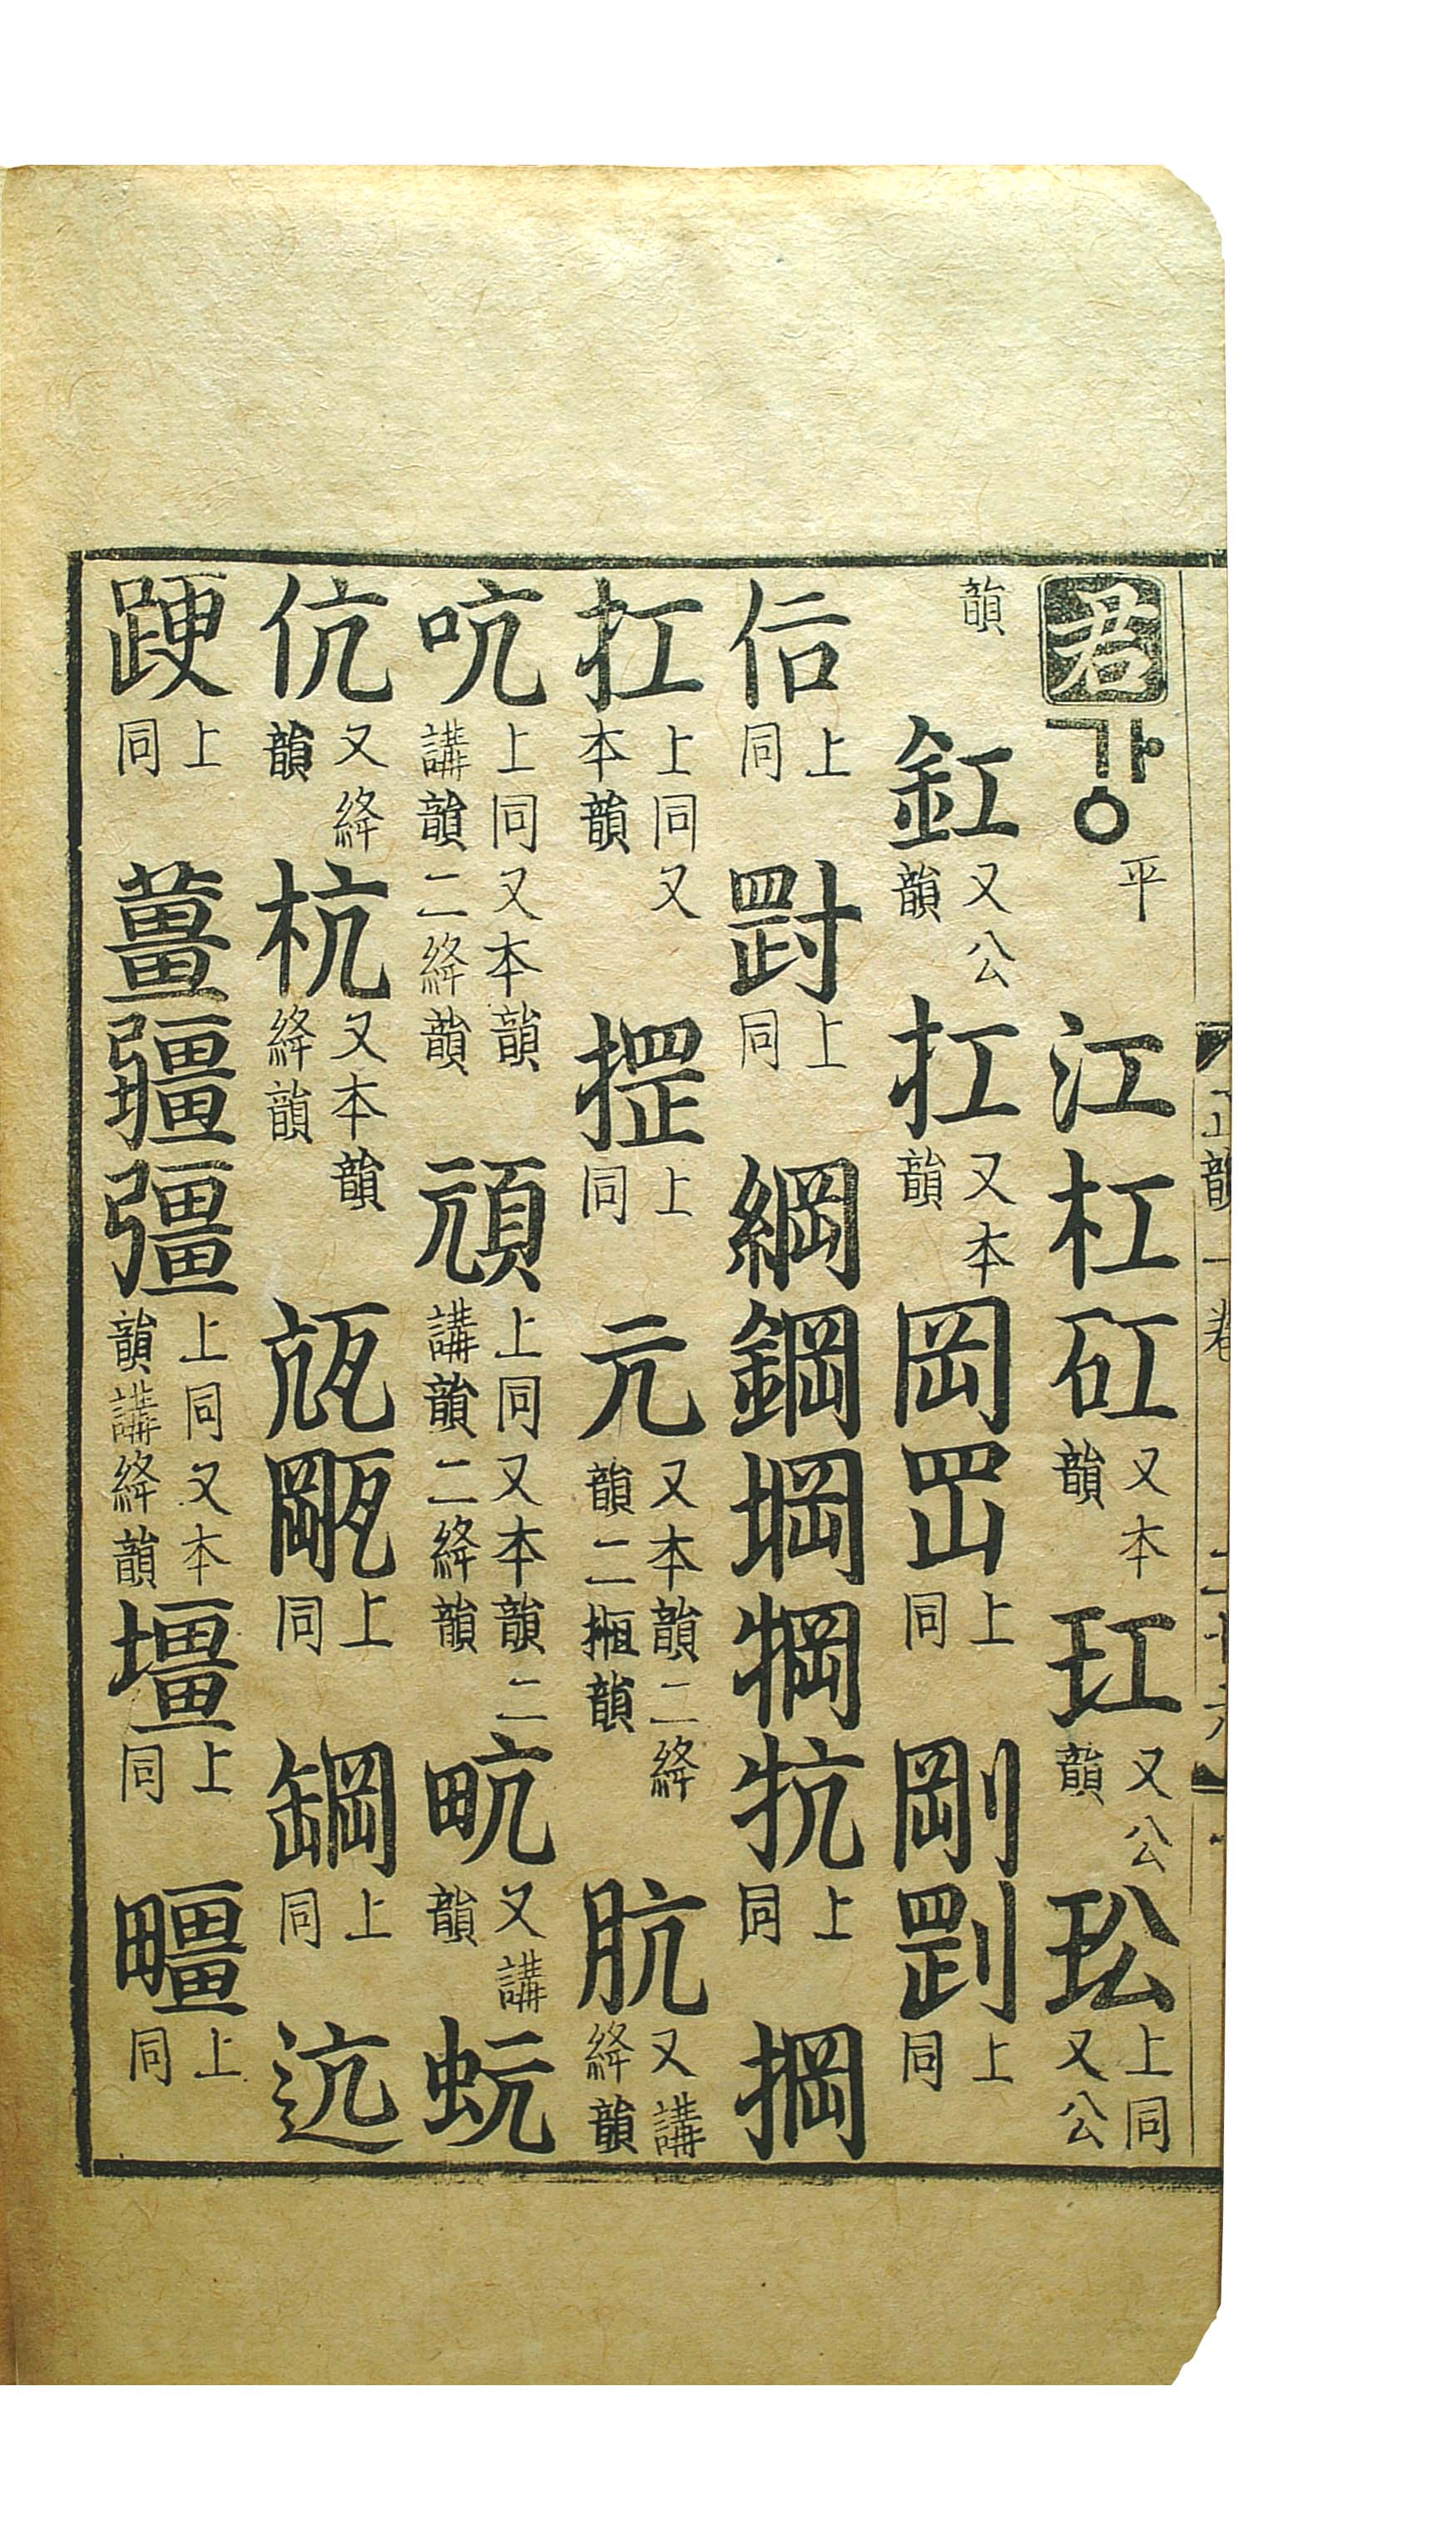 正韻一卷
君 가ᇰ 平 江杠矼 又本韻 玒 又公韻 玜 上同又公
韻 釭 又公韻 扛 又本韻 岡 上同 剛 上同
上同 上同 綱鋼堈犅犺 上同 掆
扛 上同又本韻 上同 亢 又本韻二絳韻二韻 肮 又講絳韻
吭 上同又本韻講韻二絳韻 頏 上同又本韻二講韻二絳韻 又講韻 蚢
伉 又絳韻 杭 又本韻絳韻 上同 上同 迒
𨁈 上同 薑疆彊 上同又本韻講絳韻 壃 上同 上同